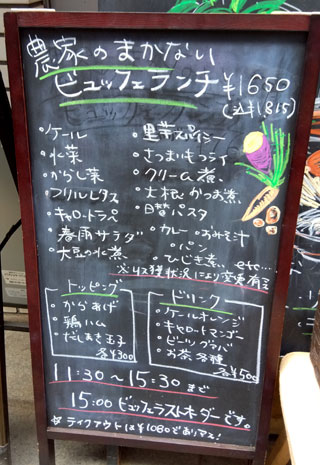 農家のまかない
ビュッフェランチ ¥1650
(込¥1815)
・ケール
・水菜
・からし菜
・フリルレタス
・キャロットラペ
・春雨サラダ
・大豆の水煮
・里芋スパイシー
・さつまいもフライ
・クリーム煮
・大根かつお煮
・日替パスタ
・カレー・おみそ汁
・パン
・ひじき煮… etc…
※収穫状況により変更有る
トッピング
・からあげ
・鶏ハム
・だしまき玉子
各¥300
ドリンク
・ケールオレンジ
・キャロットマンゴー
・ビーツグァバ
・お茶各種
各¥500
11:30〜15:30まで
15:00 ビュッフェラストオーダーです。
☆テイクアウトは¥1080でありマス!